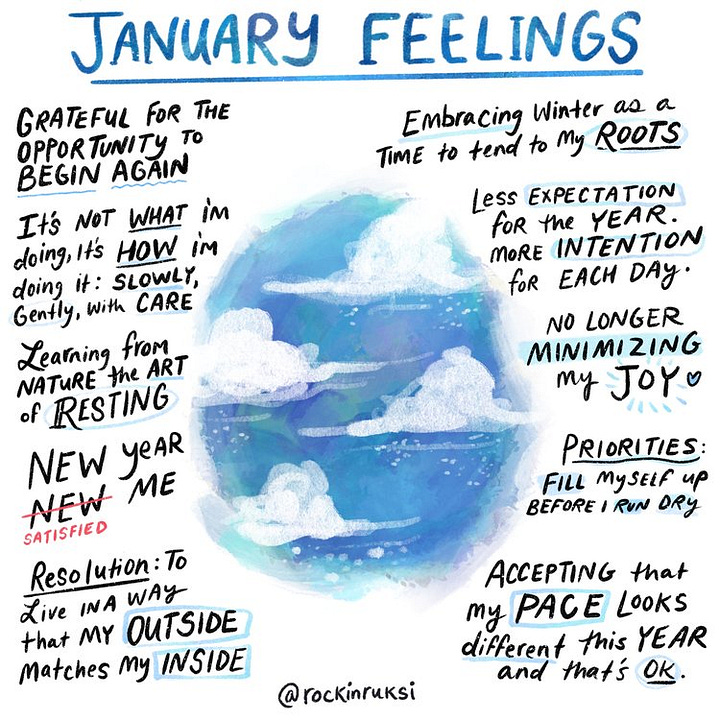 JANUARY FEELINGS
GRATEFUL FOR THE
OPPORTUNITY TO
BEGIN AGAIN
It's NOT WHAT i'm
doing, It's HOW i'm
doing it: SLOWLY,
Gently, with CARE
Learning from
NATURE the ART
of RESTING
NEW YEAR
NEW ME
SATISFIED
Resolution: To
Live IN A WAY
that MY OUTSIDE
Matches My INSIDE
Embracing Winter as a
TIME to tend to My ROOTS
Less EXPECTATION
for the YEAR.
MORE INTENTION
for EACH DAY.
NO LONGER
MINIMIZING
my JOY
PRIORITIES:
FILL MYSELF UP
BEFORE I RUN DRY
ACCEPTING that
my PACE LOOKS
different this YEAR
and that's OK.
@rockinruksi